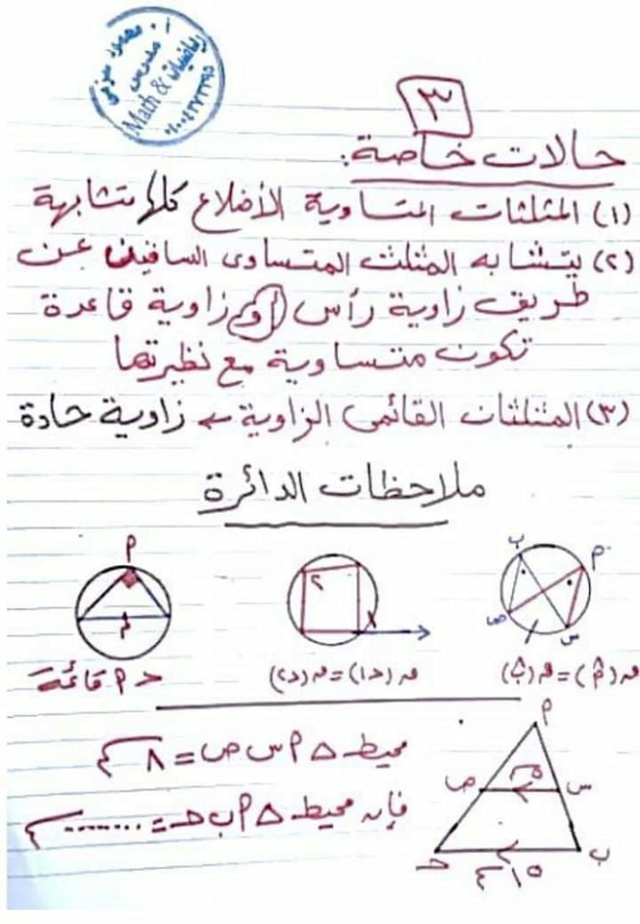 رياضيات & Math
٣
حالات خاصة:
(١) المثلثات المتساوية الأضلاع كلها متشابهة
(٢) يتشابه المثلث المتساوى الساقين عن
طريق زاوية رأس أو زاوية قاعدة
تكون متساوية مع نظيرتها
(٣) المثلثات القائمى الزاوية ← زاوية حادة
ملاحظات الدائرة
م ٢ ١ ب م ص س
م
ق(م̂) = ق(ب̂)
ق(∠١) = ق(∠٢)
∠ م قائمة
محيط △ م س ص = ٨ سم
فإن محيط △ م ب ح = ........ سم
م
ص ٥ سم س
ح ١٥ سم ب